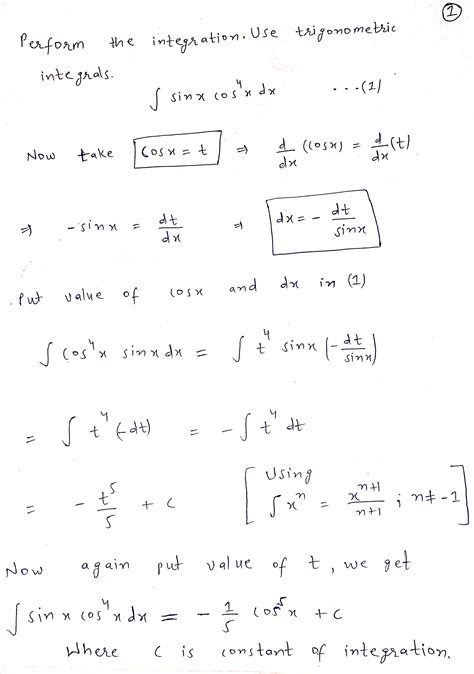 ①
Perform the integration. Use trigonometric
integrals.
∫ sinx cos⁴x dx ...(1)
Now take cosx = t ⇒ d/dx (cosx) = d/dx (t)
⇒ -sinx = dt/dx ⇒ dx = - dt/sinx
Put value of cosx and dx in (1)
∫ cos⁴x sinx dx = ∫ t⁴ sinx (-dt/sinx)
= ∫ t⁴ (-dt) = -∫ t⁴ dt
= - t⁵/5 + c [Using ∫xⁿ = xⁿ⁺¹/n+1 ; n≠-1]
Now again put value of t, we get
∫ sinx cos⁴x dx = - 1/5 cos⁵x + c
Where c is constant of integration.